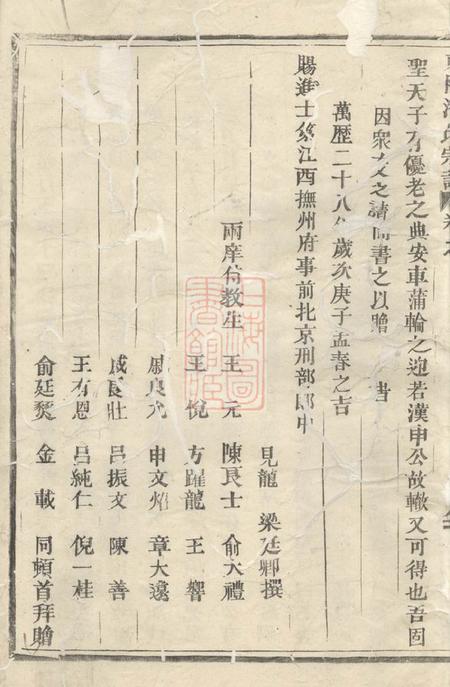 聖天子有優老之典安車蒲輪之迎若漢申公故轍又可得也吾固
因衆友之請而書之以贈 旹
萬歷二十八年歲次庚子孟春之吉
賜進士知江西撫州府事前北京刑部郎中
見龍 梁廷卿撰
兩庠侍教生 王元 陳良士 俞大禮
王悅 方躍龍 王響
戚良允 申文焰 章大遠
戚良壯 呂振文 陳善
王有恩 呂純仁 倪一桂
俞廷爕 金載 同頓首拜贈
上海圖書館藏